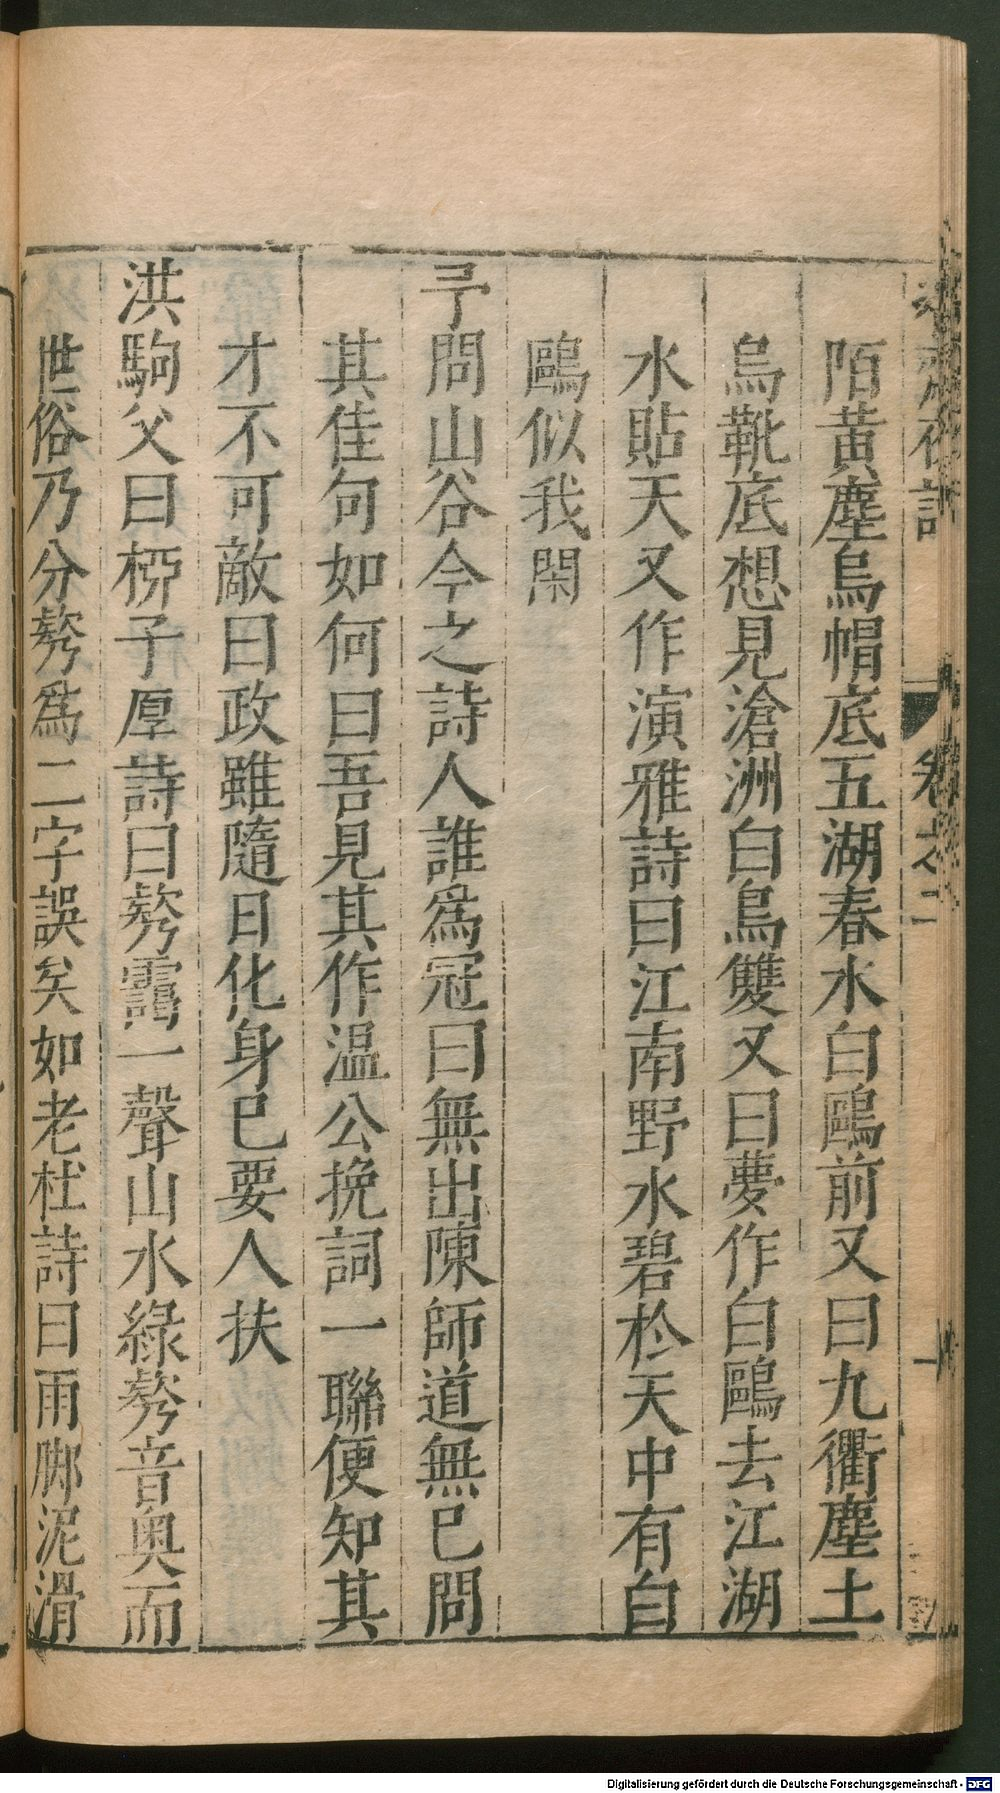 夜話
卷之二
陌黃塵烏帽底五湖春水白鷗前又曰九衢塵土
烏靴底想見滄洲白鳥雙又曰夢作白鷗去江湖
水貼天又作演雅詩曰江南野水碧於天中有白
鷗似我閑
予問山谷今之詩人誰爲冠曰無出陳師道無巳問
其佳句如何曰吾見其作温公挽詞一聯便知其
才不可敵曰政雖隨日化身巳要人扶
洪駒父曰柳子厚詩曰欸靄一聲山水綠欸音奥而
世俗乃分欸爲二字誤矣如老杜詩曰雨脚泥滑
Digitalisierung gefördert durch die Deutsche Forschungsgemeinschaft - DFG